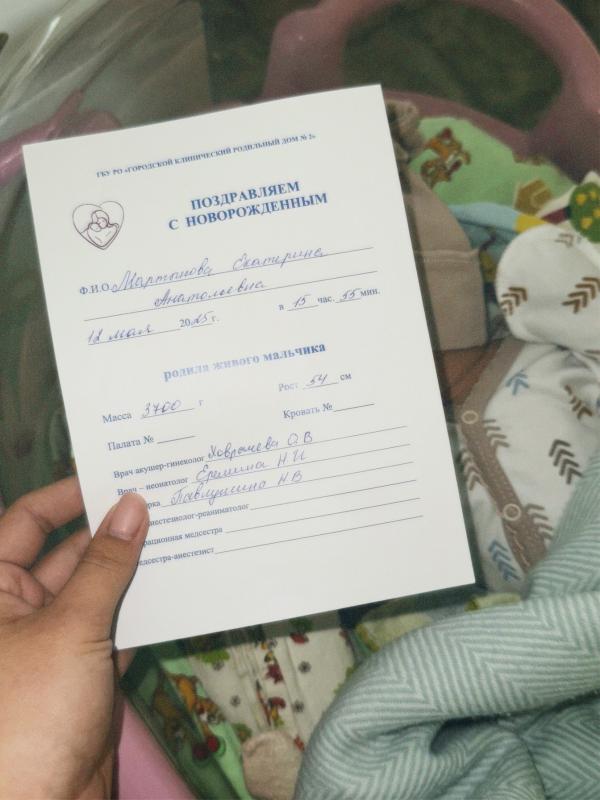 ГКУ РО «ГОРОДСКОЙ КЛИНИЧЕСКИЙ РОДИЛЬНЫЙ ДОМ № 2»
ПОЗДРАВЛЯЕМ
С НОВОРОЖДЕННЫМ
Ф.И.О. Мартынова Екатерина
Анатольевна
12 мая 2025 г. в 15 час. 55 мин.
родила живого мальчика
Масса 3700 г Рост 54 см
Палата № Кровать №
Врач акушер-гинеколог О.В
Врач – неонатолог Еремина Н.И
Павлушина Н.В
анестезиолог-реаниматолог
рационная медсестра
едсестра-анестезист